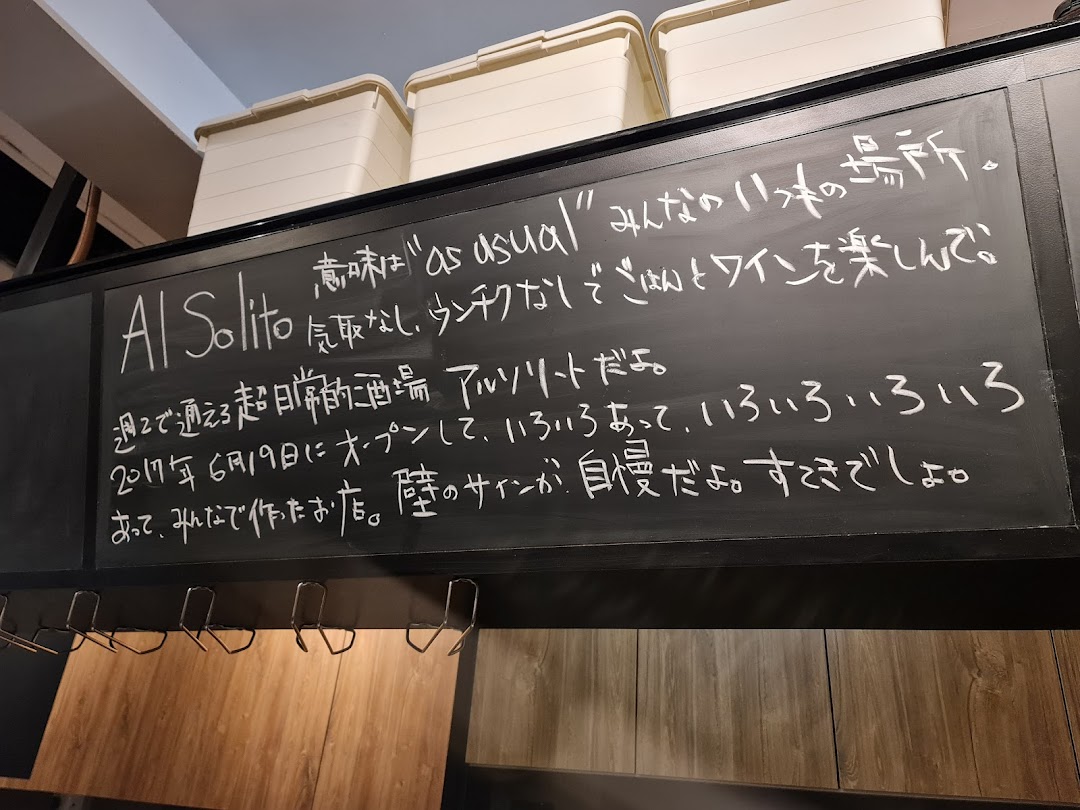 Al Solito 意味は"as usual" みんなの いつもの場所。
気取なし、ウンチクなしで ごはんとワインを楽しんで。
週2で通える超日常的酒場 アルソリートだよ。
2017年 6月19日に オープンして、いろいろあって、いろいろいろいろ
あって、みんなで作ったお店。壁のサインが、自慢だよ。すてきでしょ。